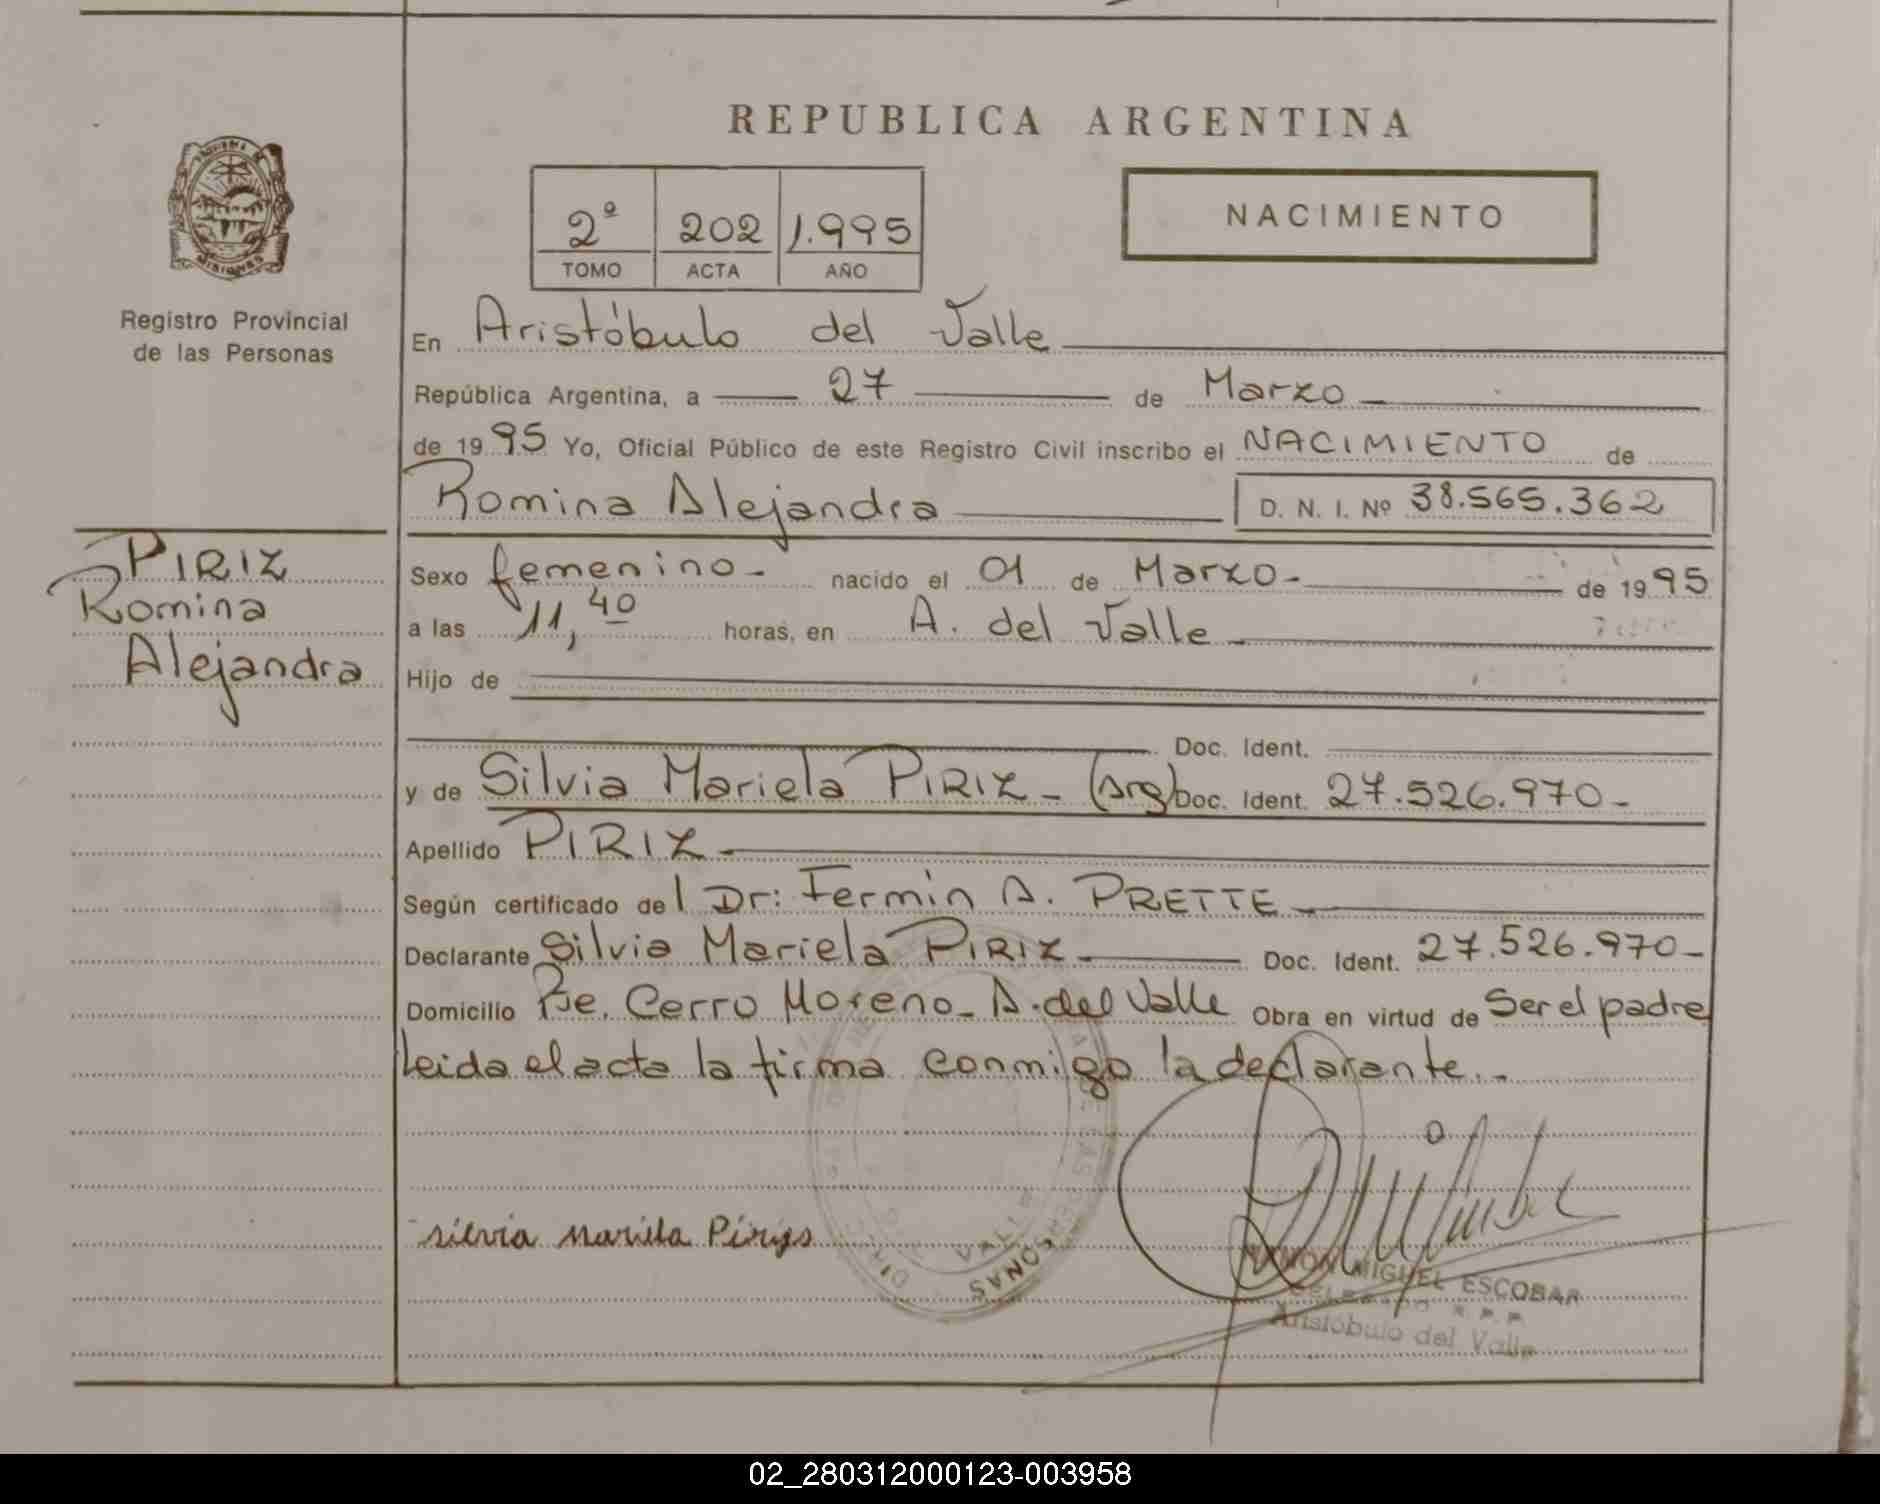 REPUBLICA ARGENTINA
PROVINCIA DE
MISIONES
Registro Provincial
de las Personas
2º 202 1.995
TOMO ACTA AÑO
NACIMIENTO
En Aristóbulo del Valle
República Argentina, a 27 de Marzo
de 1995 Yo, Oficial Público de este Registro Civil inscribo el NACIMIENTO de
Romina Alejandra D. N. I. Nº 38.565.362
PIRIZ
Romina
Alejandra
Sexo femenino- nacido el 01 de Marzo- de 1995
a las 11,40 horas, en A. del Valle
Hijo de
Doc. Ident.
y de Silvia Mariela PIRIZ - (Arg) Doc. Ident. 27.526.970-
Apellido PIRIZ
Según certificado del Dr: Fermin A. PRETTE
Declarante Silvia Mariela PIRIZ Doc. Ident. 27.526.970-
Domicilio Pje. Cerro Moreno- A. del Valle Obra en virtud de Ser el padre
Leida el acta la firma conmigo la declarante.-
silvia mariela Pirys
PERSONAS
RAMON MIGUEL ESCOBAR
DELEGADO R.P.P.
Aristóbulo del Valle
02_280312000123-003958